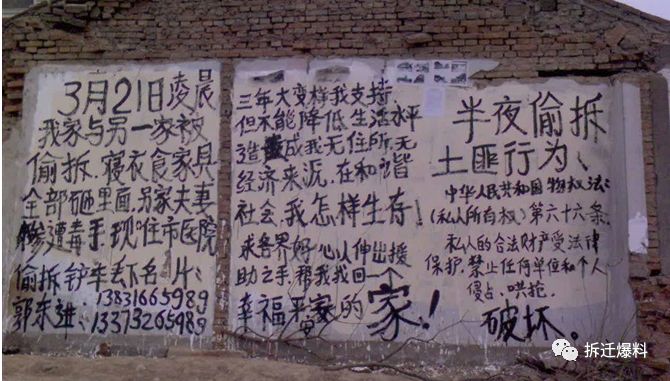 3月21日凌晨
我家与另一家被
偷拆.寝衣食家具
全部砸里面.另家夫妻
惨遭毒手.现住市医院
偷拆铲车丢下名片:
13831665989
郭东进:13373265989
三年大变样我支持
但不能降低生活水平
造成我无住所无
经济来沅.在和谐
社会,我怎样生存!
求各界好心人伸出援
助之手,帮我找回一个
幸福平 的家!
半夜偷拆
土匪行为、
中华人民共和国物权法:
(私人所有权)第六十六条.
私人的合法财产受法律
保护.禁止任何单位和个人
侵占、哄抢.
破坏.
拆迁爆料